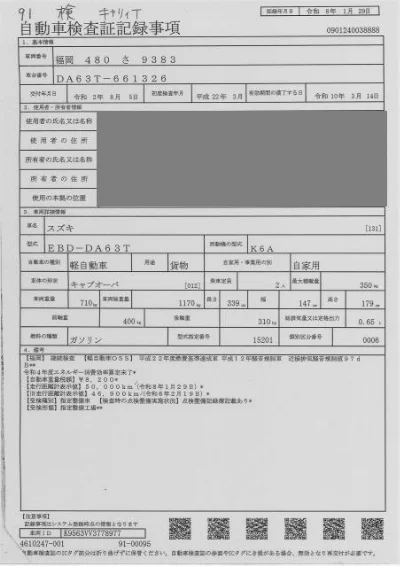 91 検 キャリイT
自動車検査証記録事項
記録年月日 令和 8年 1月 29日
0901240038888
1．基本情報
車両番号 福岡 480 さ 9383
車台番号 DA63T-661326
交付年月日 令和 3年 8月 5日 初度検査年月 平成 22年 3月 有効期間の満了する日 令和 10年 3月 14日
2．使用者・所有者情報
使用者の氏名又は名称
使用者の住所
所有者の氏名又は名称
所有者の住所
使用の本拠の位置
3．車両詳細情報
車名 スズキ [131]
型式 EBD-DA63T 原動機の型式 K6A
自動車の種別 軽自動車 用途 貨物 自家用・事業用の別 自家用
車体の形状 キャブオーバ [012] 乗車定員 2人 最大積載量 350kg
車両重量 710kg 車両総重量 1170kg 長さ 339cm 幅 147cm 高さ 179cm
前軸重 400kg 後軸重 310kg 総排気量又は定格出力 0.65L
燃料の種類 ガソリン 型式指定番号 15201 類別区分番号 0006
4．備考
【福岡】 継続検査 【軽自動車OSS】 平成22年度燃費基準達成車 平成12年騒音規制車 近接排気騒音規制値97d
B**
令和4年度エネルギー消費効率算定未了*
【自動車重量税額】¥8,200*
【走行距離計表示値】50,000km(令和8年1月29日)*
【旧走行距離計表示値】46,900km(令和6年2月19日)*
【受検種別】指定整備車 【検査時の点検整備実施状況】点検整備記録簿記載あり*
【受検形態】指定整備工場**
[注意事項]
記録事項はシステム登録時点の情報となります
車両ID K9563VV3778977
4610247-001 91-00095
自動車検査証のICタグ部分は折り曲げずに保管ください。自動車検査証の券面やICタグにき損がある場合、無効となり再交付が必要です。